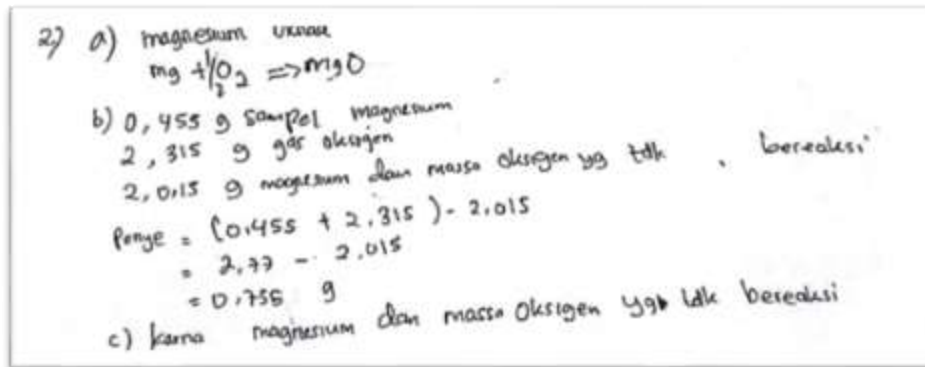 2) a) magnesium
mg + 1/2 O2 => mgO
b) 0,455 g sampel magnesium
2,315 g gas oksigen
2,015 g magnesium dan massa oksigen yg tdk bereaksi
Penye = (0,455 + 2,315) - 2,015
= 2,77 - 2,015
= 0,755 g
c) karna magnesium dan massa oksigen yg tdk bereaksi